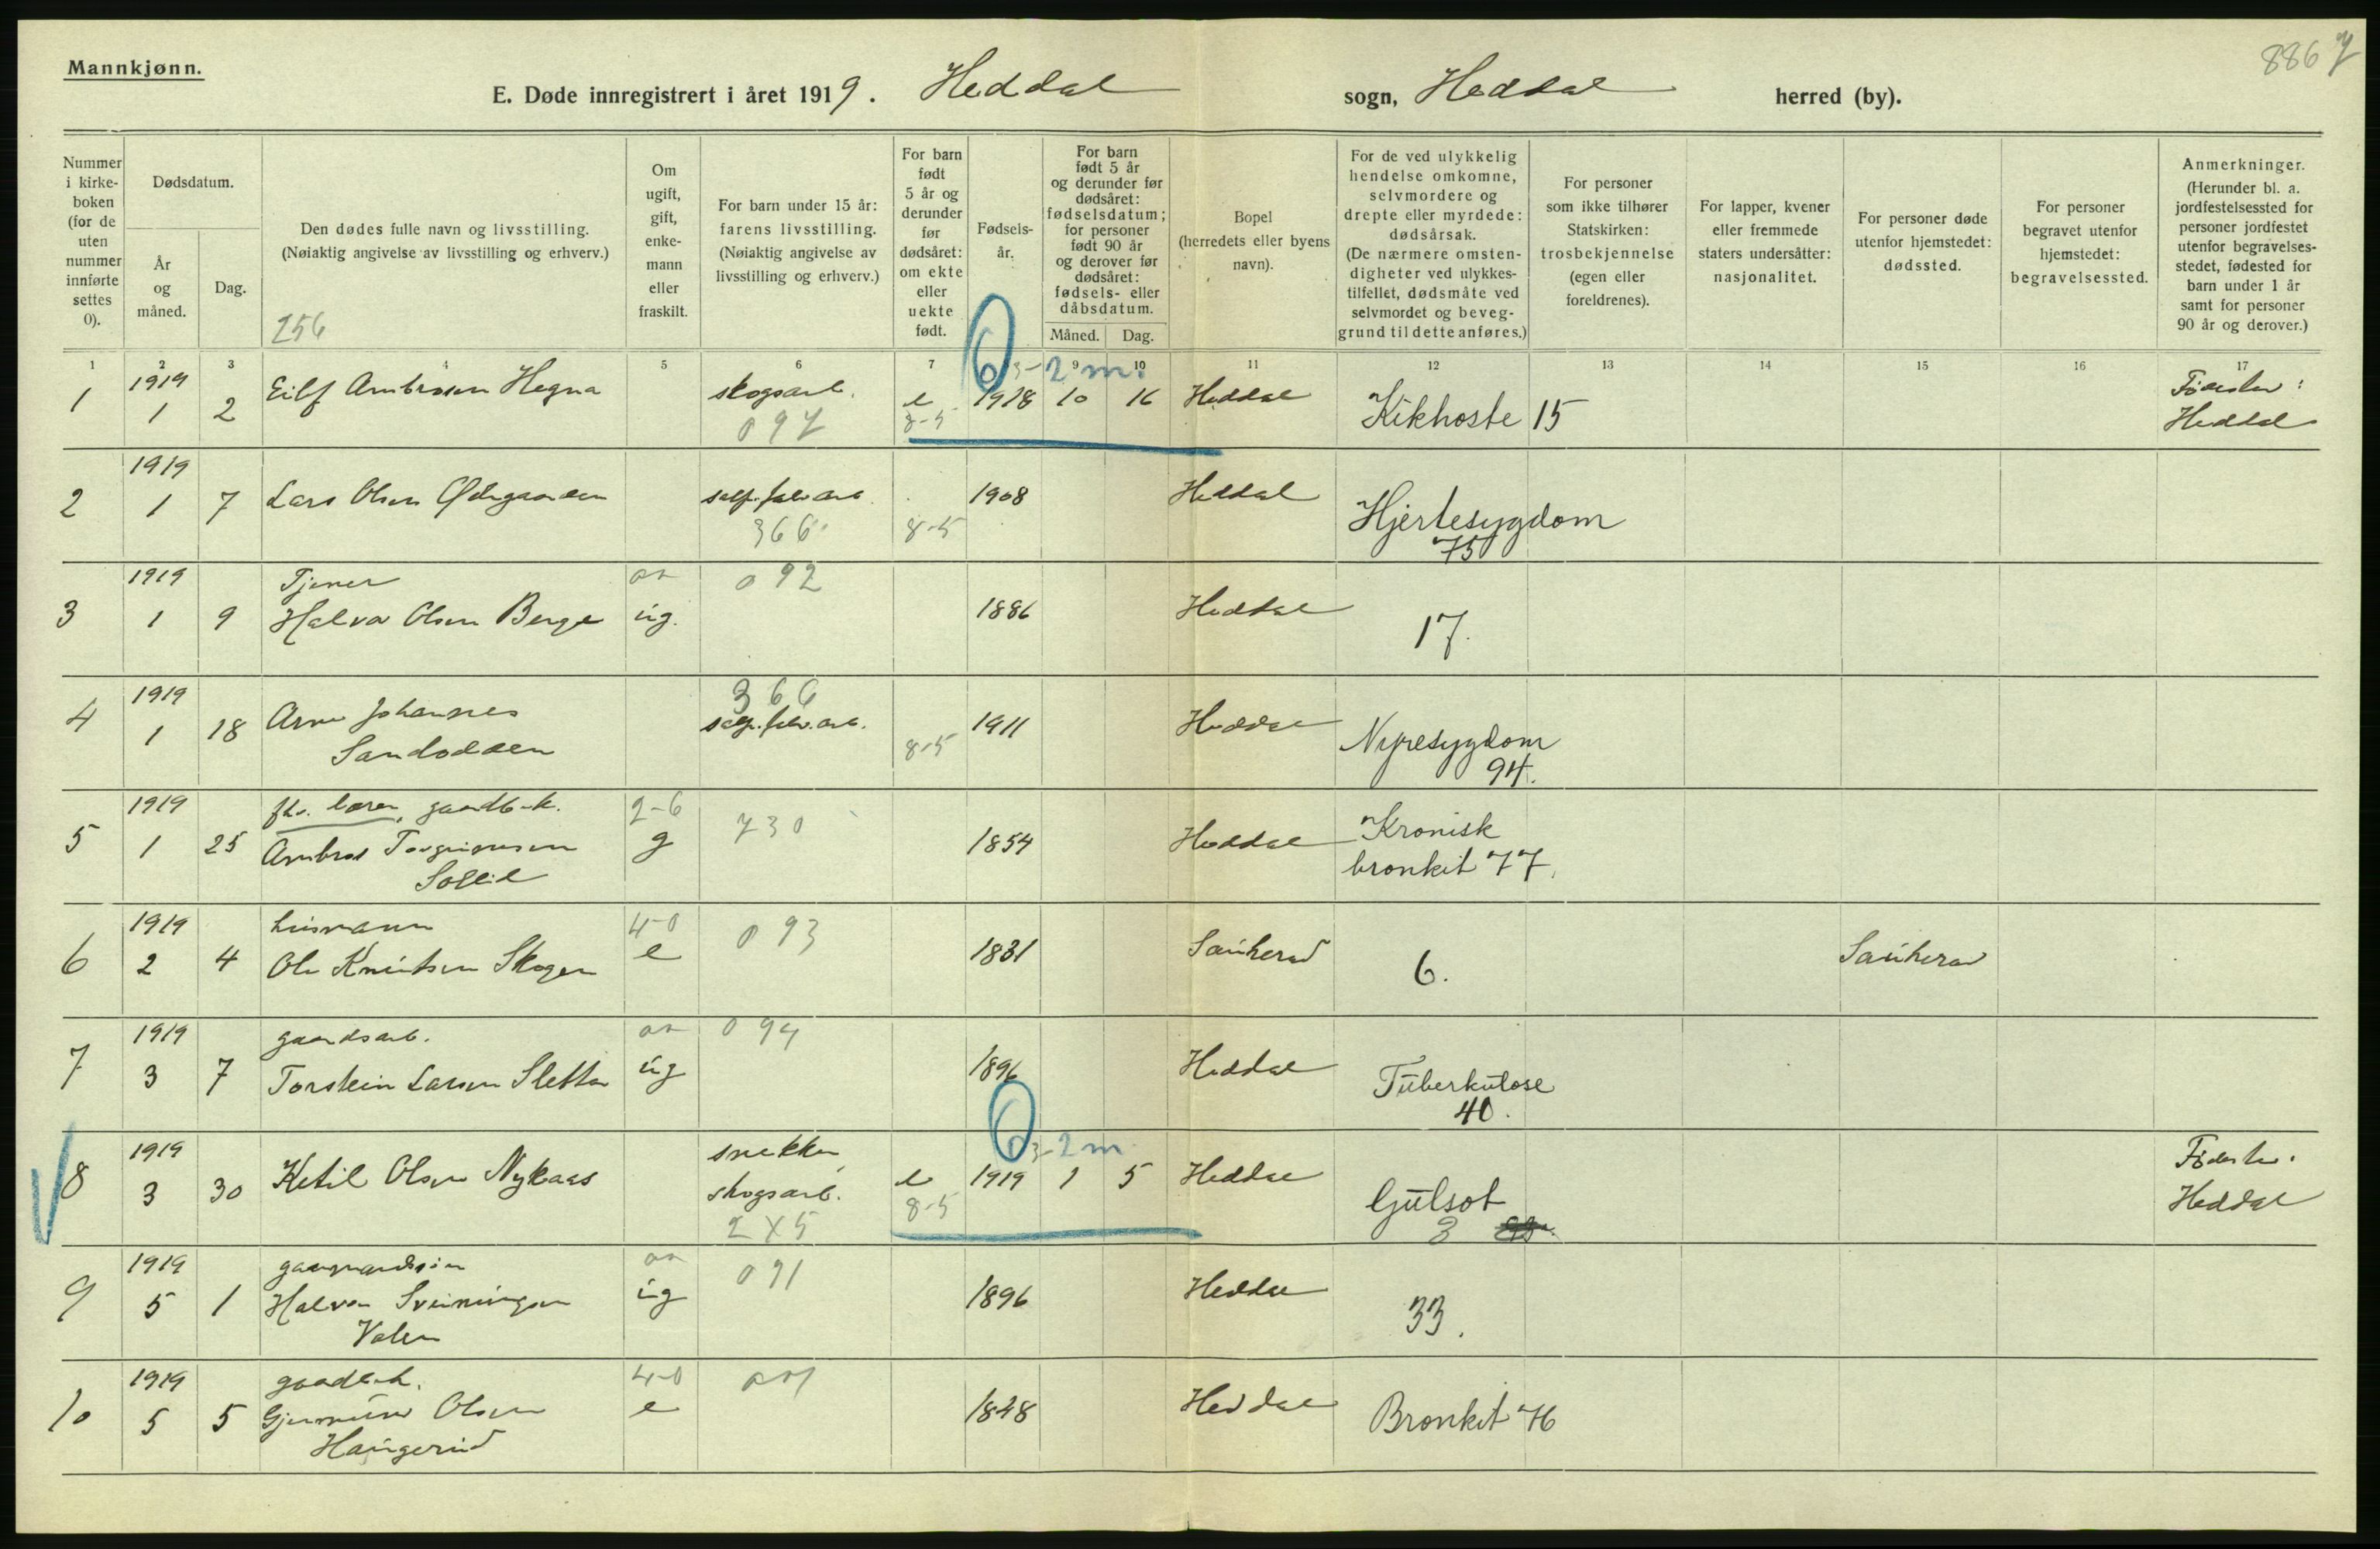 Mannkjønn.
8867
E. Døde innregistrert i året 1919. Heddal sogn, Heddal herred (by).
Nummer i kirke-boken (for de uten nummer innførte settes 0).
Dødsdatum.
År og måned.
Dag.
Den dødes fulle navn og livsstilling.
(Nøiaktig angivelse av livsstilling og erhverv.)
256
Om ugift, gift, enke-mann eller fraskilt.
For barn under 15 år: farens livsstilling.
(Nøiaktig angivelse av livsstilling og erhverv.)
For barn født 5 år og derunder før dødsåret: om ekte eller uekte født.
Fødsels-år.
For barn født 5 år og derunder før dødsåret: fødselsdatum; for personer født 90 år og derover før dødsåret: fødsels- eller dåbsdatum.
Måned. Dag.
Bopel (herredets eller byens navn).
For de ved ulykkelig hendelse omkomne, selvmordere og drepte eller myrdede: dødsårsak.
(De nærmere omsten-digheter ved ulykkes-tilfellet, dødsmåte ved selvmordet og beveg-grund til dette anføres.)
For personer som ikke tilhører Statskirken: trosbekjennelse (egen eller foreldrenes).
For lapper, kvener eller fremmede staters undersåtter: nasjonalitet.
For personer døde utenfor hjemstedet: dødssted.
For personer begravet utenfor hjemstedet: begravelsessted.
Anmerkninger.
(Herunder bl. a. jordfestelsessted for personer jordfestet utenfor begravelses-stedet, fødested for barn under 1 år samt for personer 90 år og derover.)
1 2 3 4 5 6 7 9 10 11 12 13 14 15 16 17
6 3-2 m.
1 1919 1 2 Eilf Ambrosen Hegna skogsarb. 097 e 8-5 1918 10 16 Heddal Kikhoste 15 Fødested: Heddal
2 1919 1 7 Lars Olsen Ødegaarden 366 8-5 1908 Heddal Hjertesygdom 75
3 1919 1 9 Tjener Halvor Olsen Berge ug. 092 1886 Heddal 17.
4 1919 1 18 Arne Johannes Sandodden 366 8-5 1911 Heddal Nyresygdom 94.
5 1919 1 25 gaardbr. Ambros Torgrimsen 2-6 g 730 1854 Heddal Kronisk bronkit 77.
6 1919 2 4 husmann Ole Knutsen Skogen 4-0 e 093 1831 Sauherad 6. Sauherad
7 1919 3 7 gaardsarb. Torstein Larsen Sletta ug 094 1896 Heddal Tuberkulose 40.
6 3-2 m.
8 1919 3 30 Ketil Olsen Nykaas snekker skogsarb. 2X5 e 8-5 1919 1 5 Heddal Gulsot 3 Fødested: Heddal
9 1919 5 1 gaardmandssøn Halvor Sveinungsen Valen ug 091 1896 Heddal 33.
10 1919 5 5 Gjermund Olsen Haugerud 4-0 e 1848 Heddal Bronkit 76